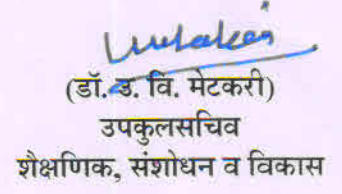 (डॉ. उ. वि. मेटकरी)
उपकुलसचिव
शैक्षणिक, संशोधन व विकास